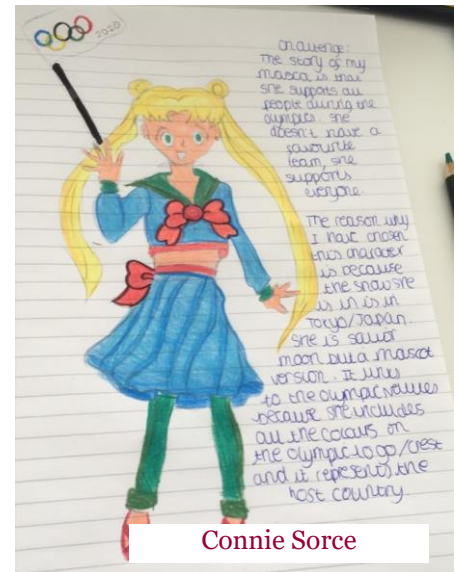 2020
Challenge:
The story of my
masca is that
she supports all
people during the
olympics. she
doesn't have a
favourite
team, she
supports
everyone.
The reason why
I have chosen
this character
is because
the show she
is in is in
Tokyo/Japan.
She is sailor
moon but a mascot
version. It links
to the olympic values
because she includes
all the colours on
the olympic logo/crest
and it represents the
host country.
Connie Sorce